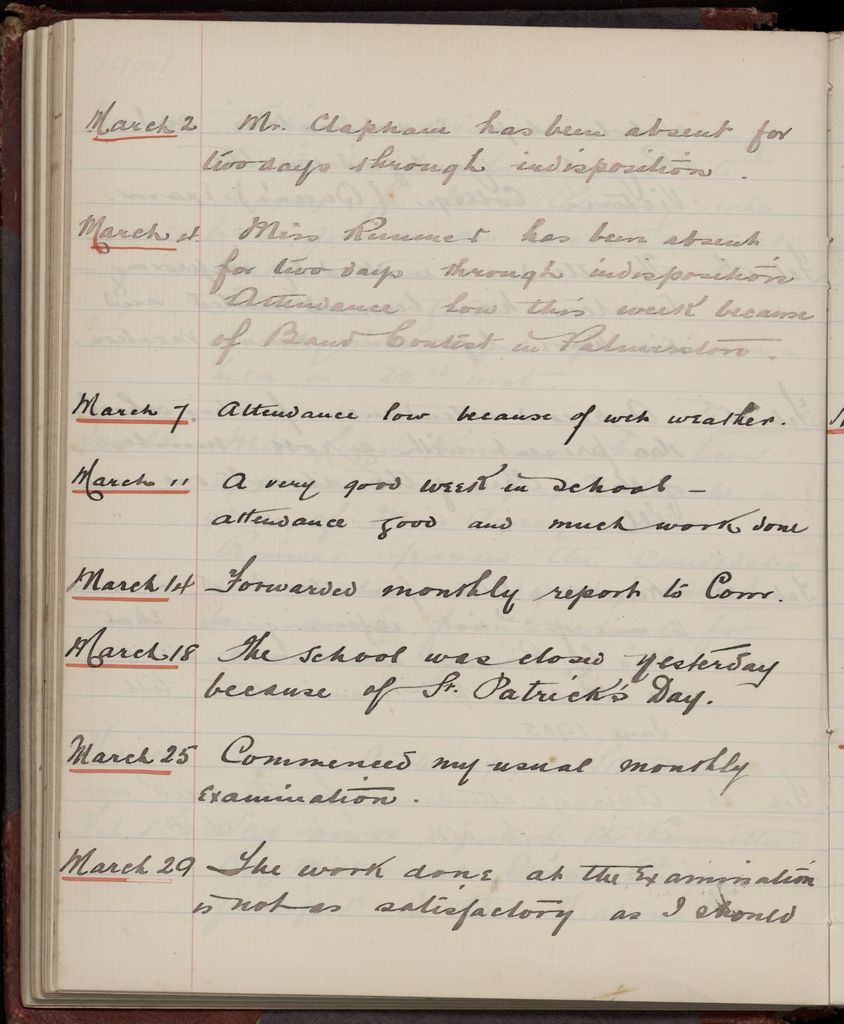 March 2 Mr. Clapham has been absent for
two days through indisposition.
March 4. Miss Rimmer has been absent
for two days through indisposition
Attendance low this week because
of Band Contest in Palmerston.
March 7 Attendance low because of wet weather.
March 11 A very good week in school –
attendance good and much work done
March 14 Forwarded monthly report to Com.
March 18 The School was closed yesterday
because of St. Patrick's Day.
March 25 Commenced my usual monthly
Examination.
March 29 The work done at the Examination
is not as satisfactory as I should